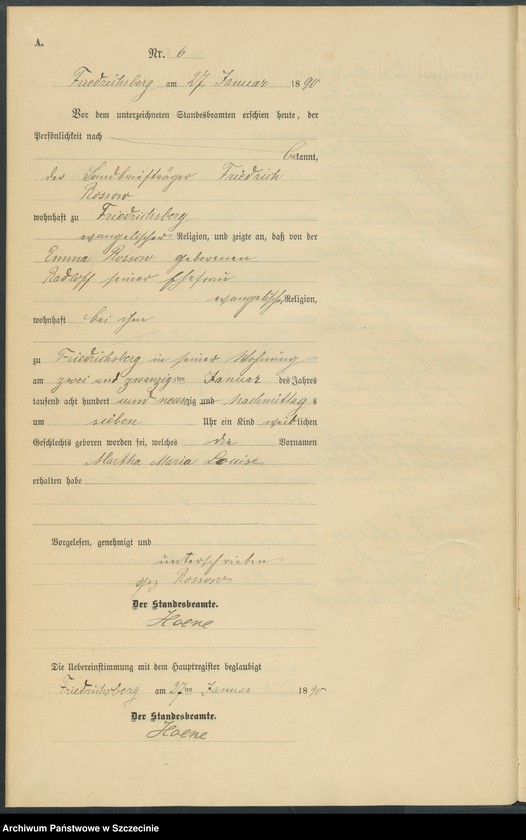 A.
Nr. 6
Friedrichsberg am 27 Januar 1890
Vor dem unterzeichneten Standesbeamten erschien heute, der
Persönlichkeit nach
bekannt,
der Landbriefträger Friedrich
Rossow
wohnhaft zu Friedrichsberg
evangelischer Religion, und zeigte an, daß von der
Emma Rossow geborenen
Radloff seiner Ehefrau
evangelischer Religion,
wohnhaft bei ihm
zu Friedrichsberg in seiner Wohnung
am zwei und zwanzigsten Januar des Jahres
tausend acht hundert und neunzig und nachmittags
um sieben Uhr ein Kind weiblichen
Geschlechts geboren worden sei, welches die Vornamen
Martha Maria Louise
erhalten habe
Vorgelesen, genehmigt und
unterschrieben
gez Rossow
Der Standesbeamte.
Hoene
Die Uebereinstimmung mit dem Hauptregister beglaubigt
Friedrichsberg am 27ten Januar 1890
Der Standesbeamte.
Hoene
Archiwum Państwowe w Szczecinie